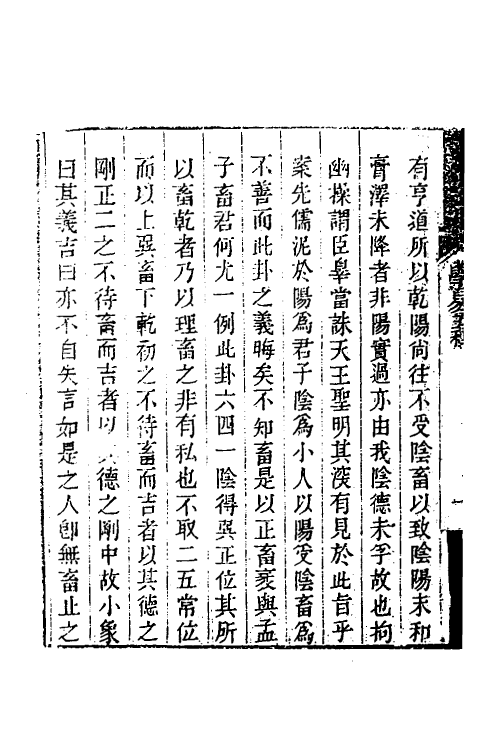 有亨道所以乾陽尚往不受陰畜以致陰陽未和
膏澤未降者非陽實過亦由我陰德未孚故也拘
幽操謂臣辠當誅天王聖明其深有見於此旨乎
案先儒泥於陽爲君子陰爲小人以陽受陰畜爲
不善而此卦之義晦矣不知畜是以正畜衺與孟
子畜君何尤一例此卦六四一陰得巽正位其所
以畜乾者乃以理畜之非有私也不取二五常位
而以上巽畜下乾初之不待畜而吉者以其德之
剛正二之不待畜而吉者以其德之剛中故小象
曰其義吉曰亦不自失言如是之人卽無畜止之